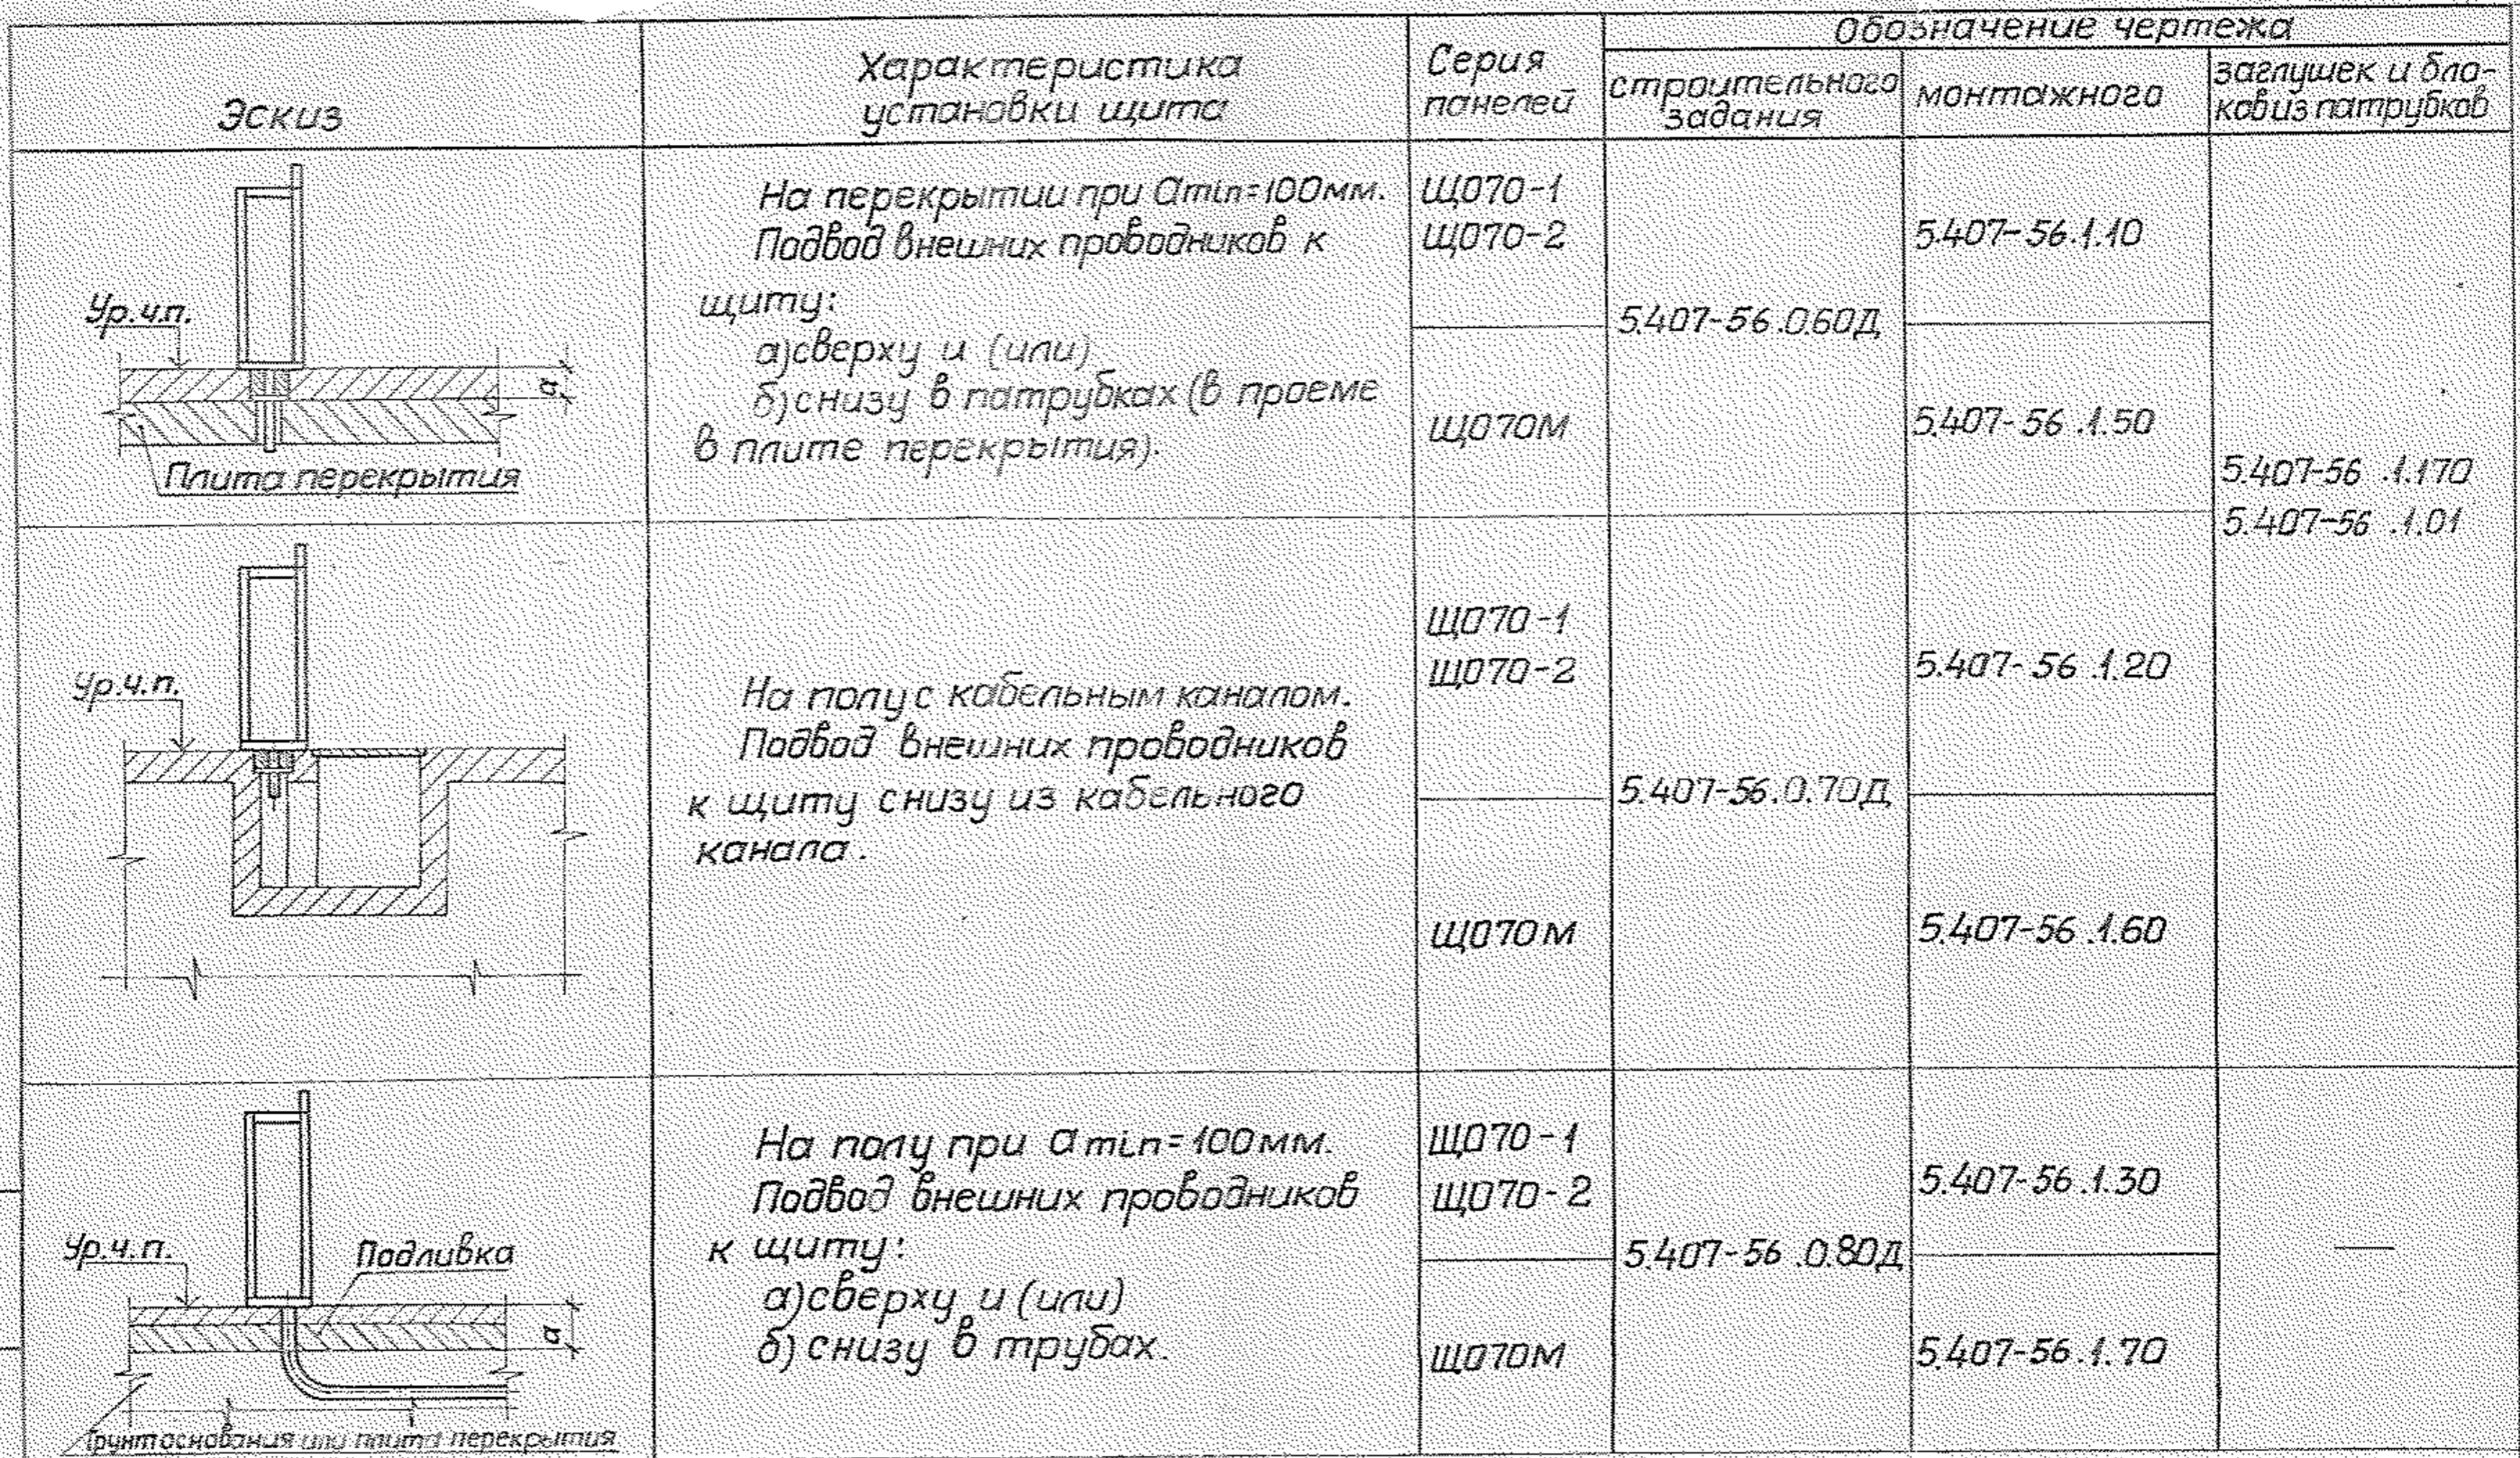 Эскиз
Характеристика
установки щита
Серия
панелей
Обозначение чертежа
строительного
задания
монтажного
заглушек и бло-
ков из патрубков
Ур.ч.п.
а
Плита перекрытия
На перекрытии при amin=100мм.
Подвод внешних проводников к
щиту:
а) сверху и (или)
б) снизу в патрубках (в проеме
в плите перекрытия).
ЩО70-1
ЩО70-2
ЩО70М
5.407-56.0.60Д
5.407-56.1.10
5.407-56.1.50
5.407-56.1.170
5.407-56.1.01
Ур.ч.п.
На полу с кабельным каналом.
Подвод внешних проводников
к щиту снизу из кабельного
канала.
ЩО70-1
ЩО70-2
ЩО70М
5.407-56.0.70Д
5.407-56.1.20
5.407-56.1.60
Ур.ч.п.
Подливка
а
Грунт основания или плита перекрытия
На полу при amin=100мм.
Подвод внешних проводников
к щиту:
а) сверху и (или)
б) снизу в трубах.
ЩО70-1
ЩО70-2
ЩО70М
5.407-56.0.80Д
5.407-56.1.30
5.407-56.1.70
—